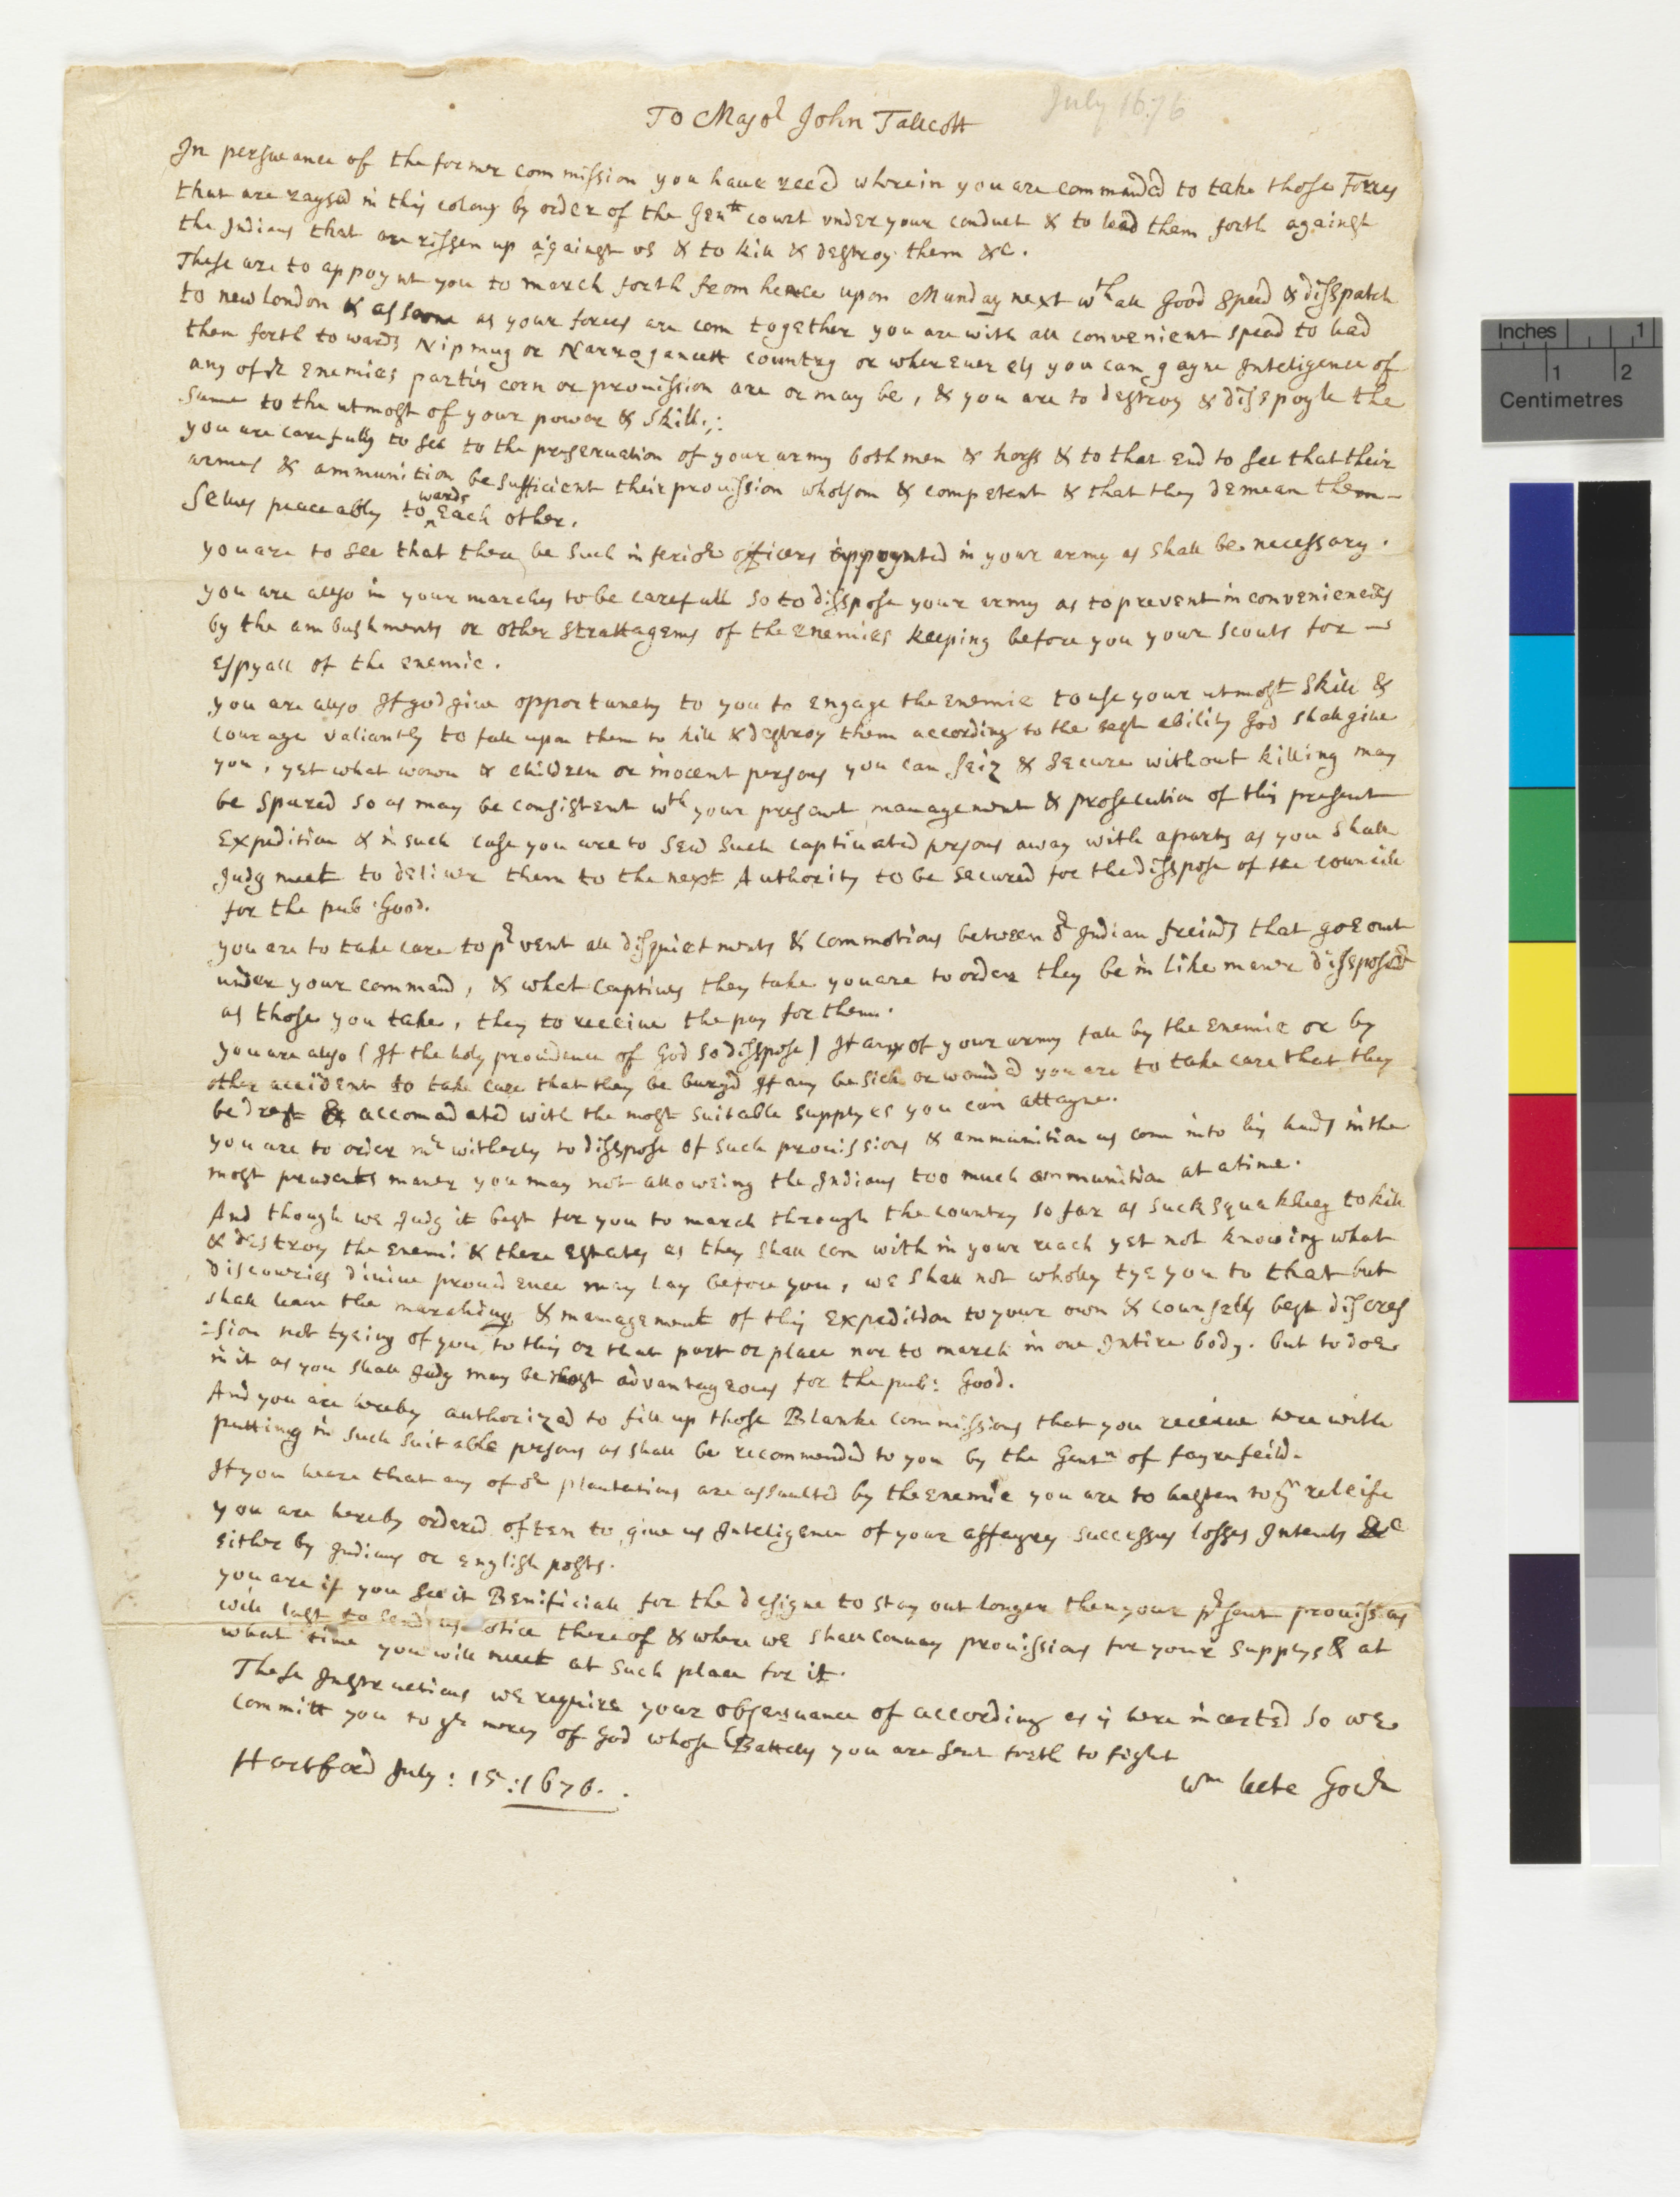 July 1676
To Major John Tallcott
In perswance of the former commission you haue recd wherein you are commanded to take those Forces
that are raysed in this colony by order of the Genll court vnder your conduct & to lead them forth against
the Indians that are rissen up against vs & to kill & destroy them &c.
These are to appoynt you to march forth from hence upon Munday next wth all good speed & disspatch
to new london & as soone as your forces are com together you are with all convenient speed to lead
them forth towards Nipmug or Narrogancett country or wher euer els you can gayne Inteligence of
any of ye Enemies parties corn or prouission are or may be, & you are to destroy & disspoyle the
same to the utmost of your power & skill.
you are carefully to see to the preseruation of your army both men & horss & to that End to see that their
armes & ammunition be sufficient their prouission wholsom & competent & that they demean them-
selues peaceably to
wards
Each other.
you are to see that there be such inferior officers appoynted in your army as shall be necessary.
you are allso in your marches to be carefull so to disspose your army as to prevent inconveniencies
by the ambushments or other strattagems of the Enemies keeping before you your scouts for
Espyall of the Enemie.
you are allso If god giue opportunety to you to Engage the Enemie to use your utmost skill &
courage valiantly to fall upon them to kill & destroy them according to the best ability God shall giue
you, yet what women & children or inocent persons you can seiz & secure without killing may
be spared so as may be consistent wth your present management & prosecution of this present
Expedition & in such case you are to send such captiuated persons away with a party as you shall
Judg meet to deliuer them to the next Authority to be secured for the disspose of the councill
for the pub: Good.
you are to take care to prvent all disquietments & commotions between or Indian freinds that goe out
under your command, & what captiues they take you are to order they be in like maner dissposed
as those you take, they to receiue the pay for them.
you are also (If the holy prouidence of God so disspose) If any of your army fall by the Enemie or by
other accident to take care that they be buryd If any be sick or wounded you are to take care that they
be drest & accomadated with the most suitable supplyes you can attayne.
you are to order mr witherly to disspose of such prouissions & ammunition as com into his hands in the
most prudent maner you may not alloweing the Indians too much ammunition at a time.
And though we Judg it best for you to march through the country so far as Suck Squakheeg to kill
& destroy the Enemi: & there Estates as they shall com with in your reach yet not knowing what
discoueries diuine prouidence may lay before you, we shall not wholly tye you to that but
shall leaue the marching & management of this Expedition to your own & counsells best discres
:sion not tyeing of you to this or that part or place nor to march in one Intire body. but to doe
in it as you shall Judg may be most advantageous for the pub: Good.
And you are hereby authorized to fill up those Blanke commissions that you receiue here with
putting in such suitable persons as shall be recommended to you by the Gentn of fayrefeild.
If you heare that any of or plantations are assaulted by the Enemie you are to hasten to ym releife
you are hereby ordered often to giue us Inteligence of your affayres successes losses Intents &c
either by Indians or English posts.
you are if you see it Benificiall for the designe to stay out longer then your prsent prouissions
will last to send us notice thereof & where we shall conuay prouissions for your supplys & at
what time you will meet at such place for it.
These Instructions we require your obseruance of according as is here incerted so we
committ you to ye mercy of God whose Battells you are sent forth to fight
Hartford July: 15: 1676.
Wm Leete Govr